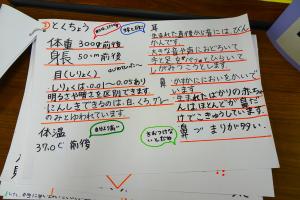 とくちょう
体重 3000g前後
身長 50cm前後
目(しりょく)
しりょくは、0.01〜0.05あり
明るさや暗さを区別できます。
にんしきできるのは、白、くろ、グレー
のみと言われています
体温
37.0℃前後
耳
生まれた直後から音には、びん
かんです。
大きな音や声におどろいて
手と足をひらいて
しがみつこうとします。
鼻・かすかににおいをかいで
います
生まれたばかりの赤ちゃ
んはほとんどが鼻だ
けでこきゅうしています。
鼻づまりが多い。